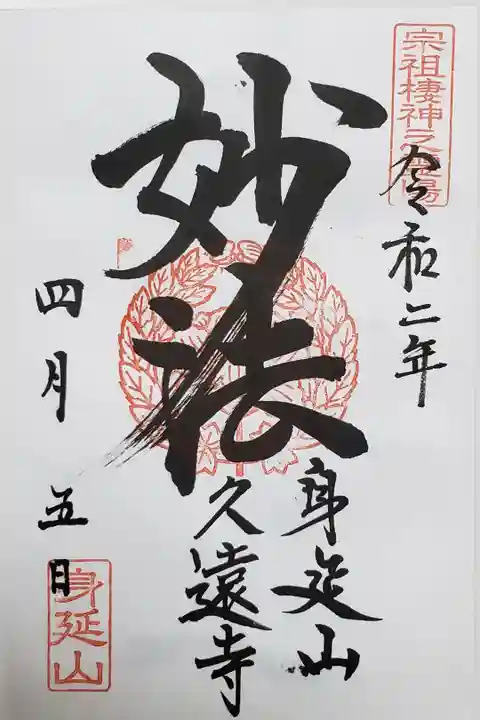 宗祖棲神之霊場
令和二年
妙法
身延山
久遠寺
四月五日
身延山